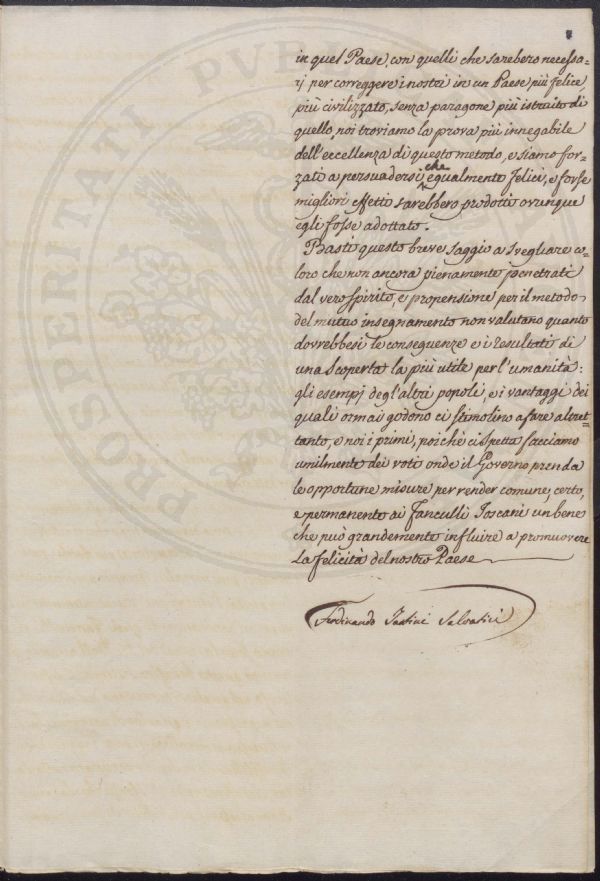 in quel Paese, con quelli che sarebero necessa-
rj per correggere i nostri in un Paese più felice,
più civilizzato, senza paragone più istruito di
quello, noi troviamo la prova più innegabile
dell'eccellenza di questo metodo, e siamo for-
zati a persuadersi, che egualmente felici, e forse
migliori effetti sarebbero prodotti ovvunque
egli fosse adottato.
Basti questo breve saggio a svegliare co-
loro che non ancora pienamente penetrati
dal vero spirito, e propensione per il metodo
del mutuo insegnamento non valutano quanto
dovrebbesi le conseguenze e i resultati di
una scoperta la più utile per l'umanità:
gli esempj degl'altri popoli, e i vantaggi dei
quali ormai godono ci stimolino a fare altret-
tanto, e noi i primi, poichè ci spetta facciamo
umilmente dei voti onde il Governo prenda
le opportune misure per render comune, certo,
e permanente ai Fanculli Toscani un bene
che può grandemente influire a promuovere
la felicità del nostro Paese
Ferdinando Tartini Salvatici
PROSPERITATI PVBL